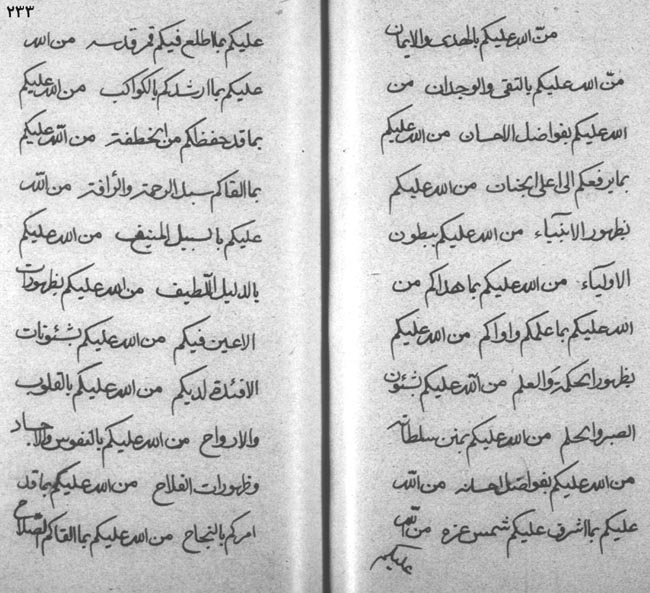 ٢٣٣
منّ الله عليكم بالهدى والايمان
منّ الله عليكم بالتقى والوجدان من
الله عليكم بفواضل الاحسان من الله عليكم
بما يرفعكم الى اعلى الجنان من الله عليكم
بظهور الانبياء من الله عليكم ببطون
الاولياء من الله عليكم بما هداكم من
الله عليكم بما علمكم واواكم من الله عليكم
بظهور الحكمة والعلم من الله عليكم بشئون
الصبر والحلم من الله عليكم بمنن سلطانه
من الله عليكم بفواضل احسانه من الله
عليكم بما اشرق عليكم شمس عزه من الله
عليكم
عليكم بما اطلع فيكم قمر قدسه من الله
عليكم بما ارشدكم بالكواكب من الله عليكم
بما قد حفظكم من الخطفة من الله عليكم
بما القاكم سبل الرحمة والرأفة من الله
عليكم بالسبيل المنيف من الله عليكم
بالدليل اللطيف من الله عليكم بظهورات
الاعين فيكم من الله عليكم بشئونات
الافئدة لديكم من الله عليكم بالقلوب
والارواح من الله عليكم بالنفوس والاجساد
وظهورات الفلاح من الله عليكم بما قد
امركم بالنجاح من الله عليكم بما القاكم الصلاح